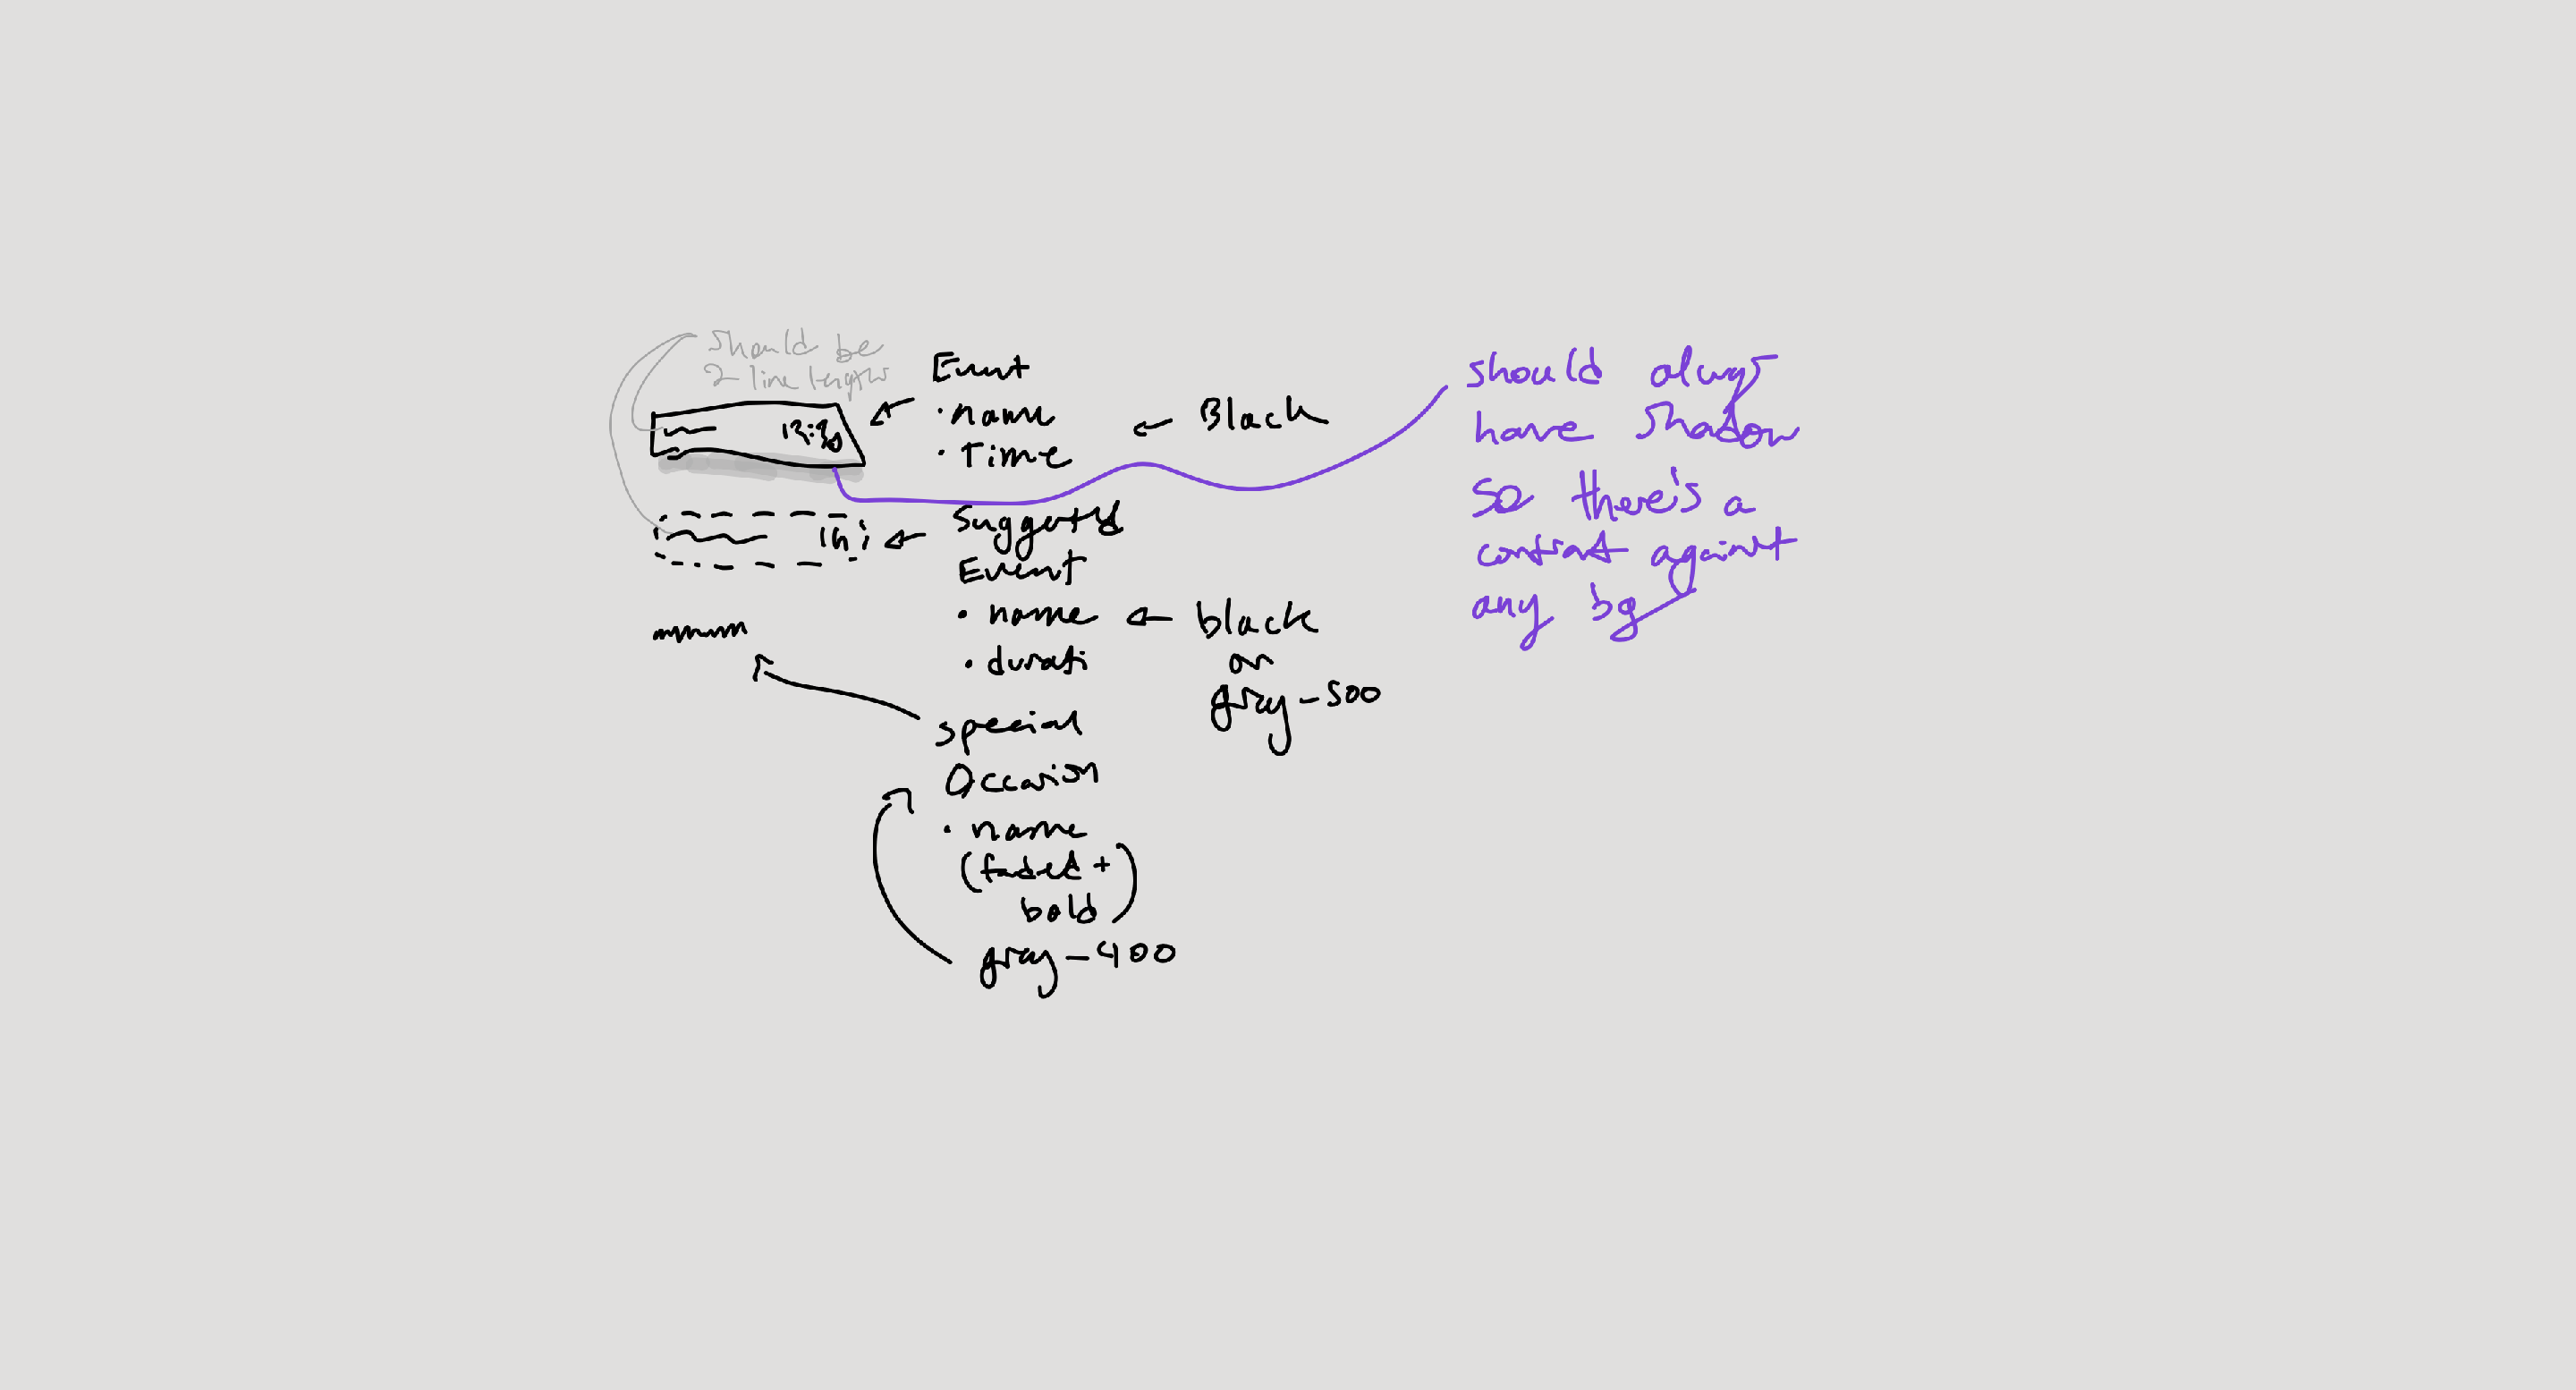 should be
2-line lengths
12:30
Event
• name
• Time
← Black
1h
Suggested
Event
• name ← black
or
gray-500
• durati
special
Occasion
• name
(faded +
bold)
gray-400
should always
have shadow
so there's a
contrast against
any bg